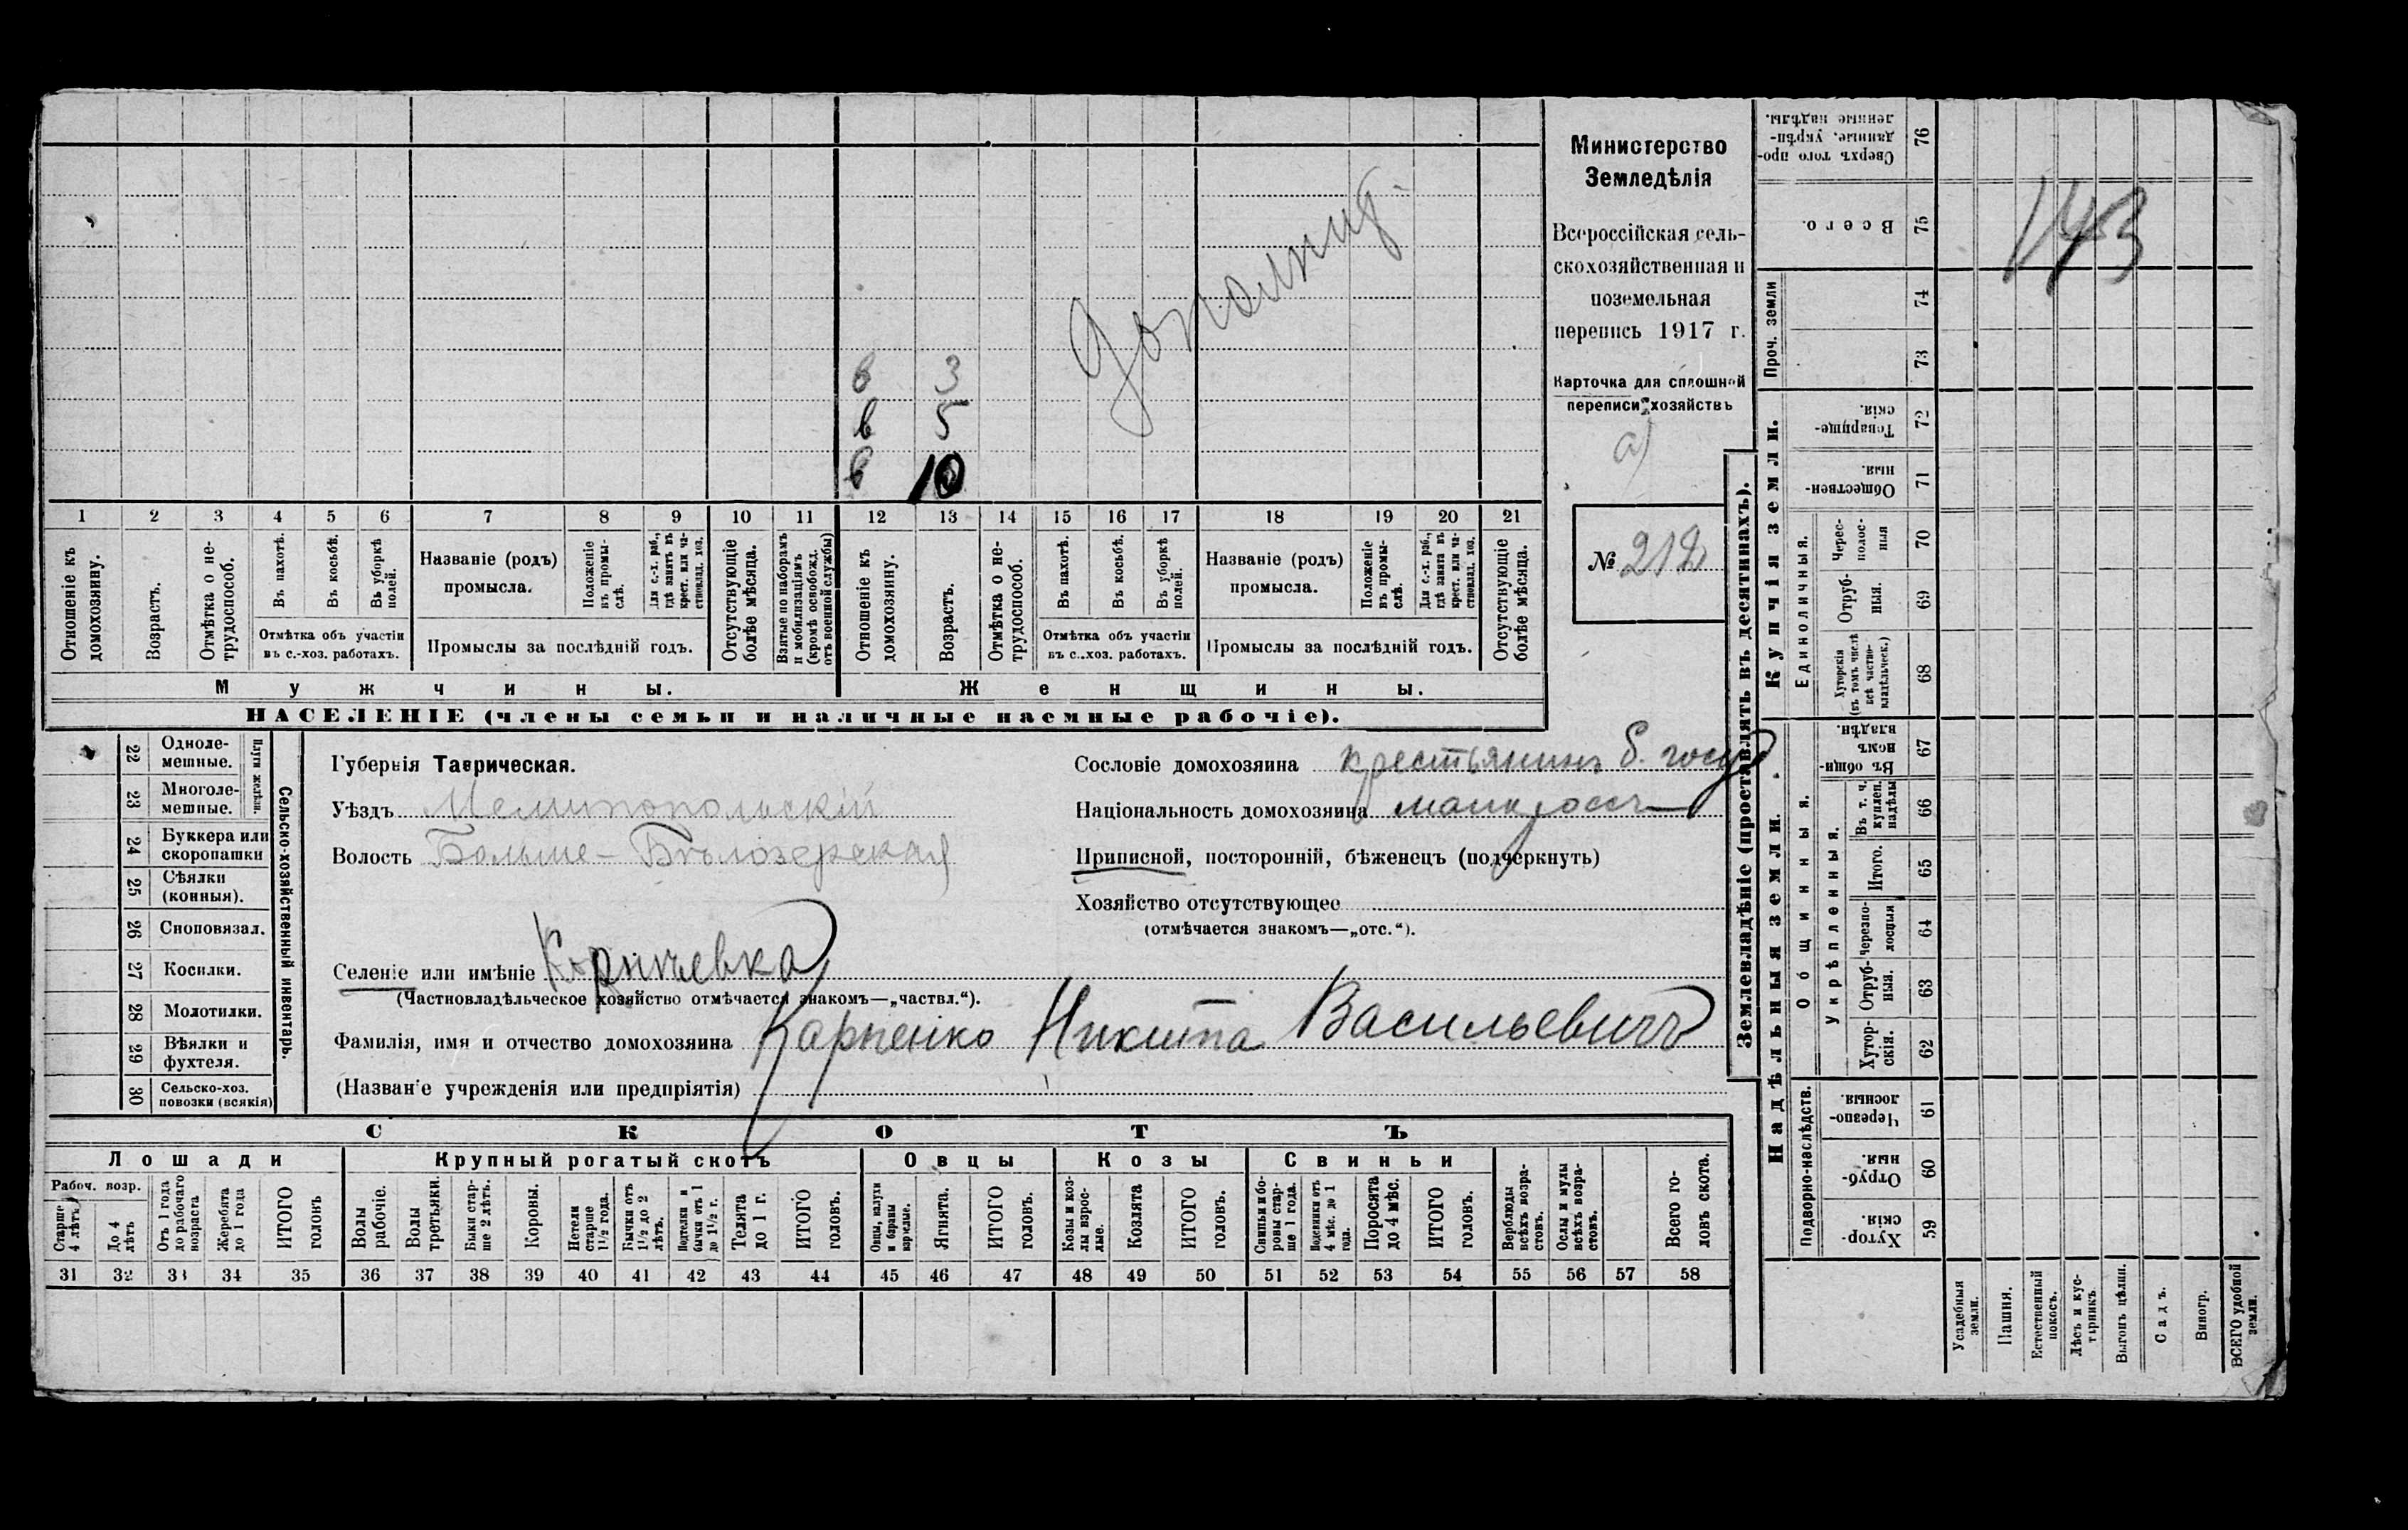 Министерство
Земледѣлія
Всероссійская сель-
скохозяйственная и
поземельная
перепись 1917 г.
Карточка для сплошной
переписи хозяйствъ
а)
№ 212
143
в 3
в 5
в 10
1 2 3 4 5 6 7 8 9 10 11 12 13 14 15 16 17 18 19 20 21
Отношеніе къ домохозяину.
Возрастъ.
Отмѣтка о не-трудоспособ.
Въ пахотѣ.
Въ косьбѣ.
Въ уборкѣ полей.
Отмѣтка объ участіи
въ с.-хоз. работахъ.
Названіе (родъ)
промысла.
Положеніе въ промы-слѣ.
Для с.-х. раб., гдѣ занятъ въ крест. или ча-стновлад. хоз.
Промыслы за послѣдній годъ.
Отсутствующіе болѣе мѣсяца.
Взятые по наборамъ и мобилизаціямъ (кромѣ освобожд. отъ военной службы)
Отношеніе къ домохозяину.
Возрастъ.
Отмѣтка о не-трудоспособ.
Въ пахотѣ.
Въ косьбѣ.
Въ уборкѣ полей.
Отмѣтка объ участіи
въ с.-хоз. работахъ.
Названіе (родъ)
промысла.
Положеніе въ промы-слѣ.
Для с.-х. раб., гдѣ занята въ крест. или ча-стновлад. хоз.
Промыслы за послѣдній годъ.
Отсутствующіе болѣе мѣсяца.
Мужчины. Женщины.
НАСЕЛЕНІЕ (члены семьи и наличные наемные рабочіе).
Сельско-хозяйственный инвентарь.
Плуги желѣзн.
22 Одноле-мешные.
23 Многоле-мешные.
24 Буккера или скоропашки
25 Сѣялки (конныя).
26 Сноповязал.
27 Косилки.
28 Молотилки.
29 Вѣялки и фухтеля.
30 Сельско-хоз. повозки (всякія)
Губернія Таврическая.
Уѣздъ Мелитопольскій
Волость Больше-Бѣлозерская
Селеніе или имѣніе
(Частновладѣльческое хозяйство отмѣчается знакомъ—„частвл.“).
Фамилія, имя и отчество домохозяина Карпенко Никита Васильевичъ
(Названіе учрежденія или предпріятія)
Сословіе домохозяина крестьянинъ б. госуд
Національность домохозяина малоросс
Приписной, посторонній, бѣженецъ (подчеркнуть)
Хозяйство отсутствующее
(отмѣчается знакомъ—„отс.“).
СКОТЪ
Лошади Крупный рогатый скотъ Овцы Козы Свиньи
Рабоч. возр.
Старше 4 лѣтъ
До 4 лѣтъ
Отъ 1 года до рабочаго возраста
Жеребята до 1 года
ИТОГО головъ
Волы рабочіе.
Волы третьяки.
Быки стар-ше 2 лѣтъ.
Коровы.
Нетели старше 1½ года.
Бычки отъ 1½ до 2 лѣтъ.
Подтелки и бычки отъ 1 до 1½ г.
Телята до 1 г.
ИТОГО головъ.
Овцы, валухи и бараны взрослые.
Ягнята.
ИТОГО головъ.
Козы и коз-лы взрос-лые.
Козлята
ИТОГО головъ.
Свиньи и бо-ровы стар-ше 1 года.
Подсвинки отъ 4 мѣс. до 1 года.
Поросята до 4 мѣс.
ИТОГО головъ.
Верблюды всѣхъ возра-стовъ.
Ослы и мулы всѣхъ возра-стовъ.
Всего го-ловъ скота.
31 32 33 34 35 36 37 38 39 40 41 42 43 44 45 46 47 48 49 50 51 52 53 54 55 56 57 58
Землевладѣніе (проставлять въ десятинахъ).
Купчія земли.
Надѣльныя земли.
Сверхъ того про-данные, укрѣп-ленные надѣлы. 76
Всего. 75
Проч. земли
74
73
Товарище-скія. 72
Обществен-ныя. 71
Единоличныя.
Черес-полос-ныя 70
Отруб-ныя. 69
Хуторскія (въ томъ числѣ всѣ частно-владѣльческ.) 68
Общинныя.
Въ общин-номъ владѣн. 67
Укрѣпленныя.
Въ т. ч. куплен. надѣлы 66
Итого. 65
Черезпо-лосныя 64
Отруб-ныя. 63
Хутор-скія. 62
Подворно-наслѣдств.
Черезпо-лосныя. 61
Отруб-ныя. 60
Хутор-скія. 59
Усадебныя земли.
Пашня.
Естественный покосъ.
Лѣсъ и кус-тарникъ.
Выгонъ цѣлин.
Садъ.
Виногр.
ВСЕГО удобной земли.